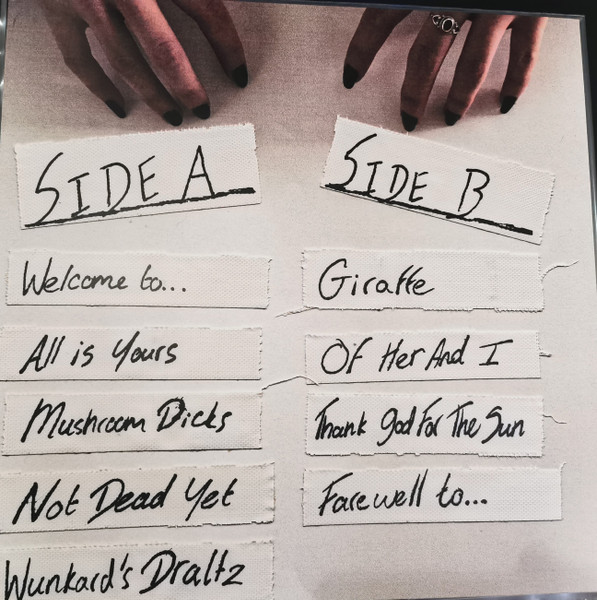 SIDE A
Welcome to...
All is Yours
Mushroom Dicks
Not Dead Yet
Wunkard's Draltz
SIDE B
Giraffe
Of Her And I
Thank god For The Sun
Farewell to...